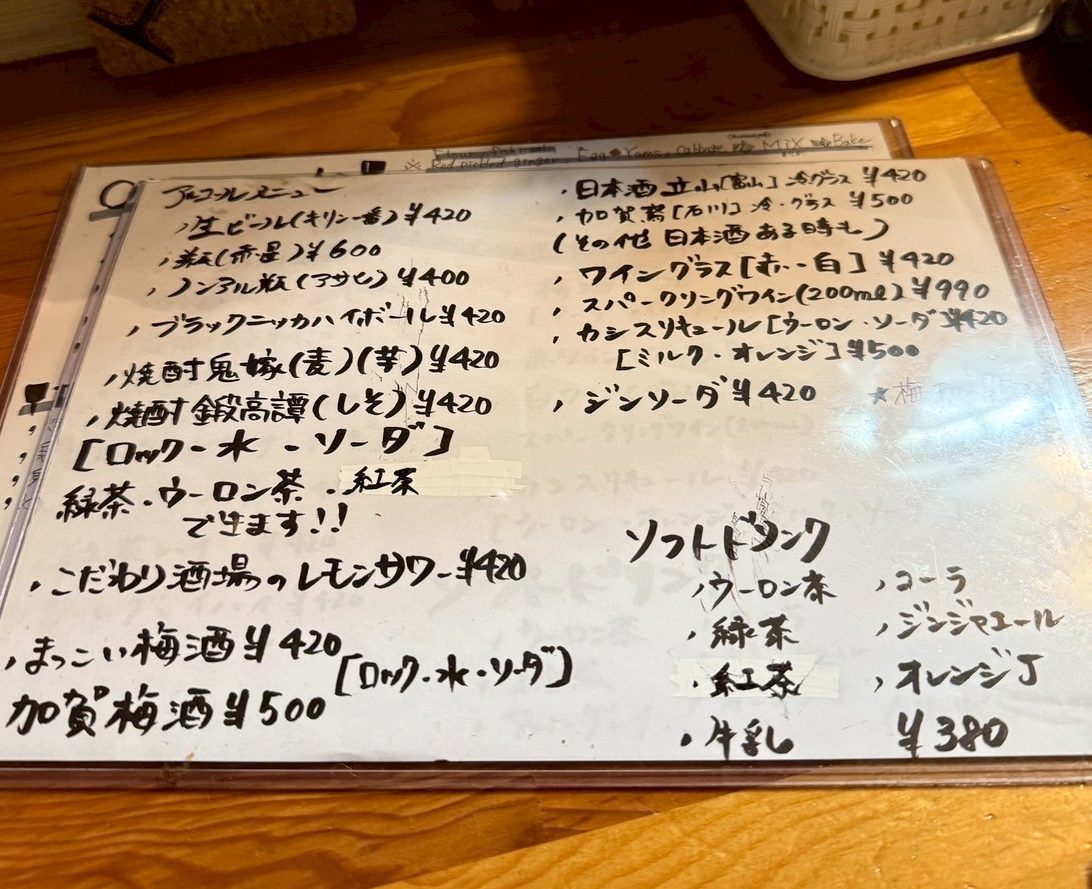 Flour, Pork meat
※ Red pickled ginger, Egg Yams, Cabbage Mix Bake
アルコールメニュー
・生ビール(キリン一番)¥420
・瓶(赤星)¥600
・ノンアル瓶(アサヒ)¥400
・ブラックニッカハイボール¥420
・焼酎鬼嫁(麦)(芋)¥420
・焼酎鍛高譚(しそ)¥420
[ロック・水・ソーダ]
緑茶・ウーロン茶・紅茶
できます!!
・こだわり酒場のレモンサワー¥420
・まっこい梅酒¥420
加賀梅酒¥500
[ロック・水・ソーダ]
・日本酒立山[富山]冷グラス ¥420
・加賀鳶[石川]冷・グラス ¥500
(その他 日本酒ある時も)
・ワイングラス[赤・白]¥420
・スパークリングワイン(200ml)¥990
・カシスリキュール[ウーロン・ソーダ]¥420
[ミルク・オレンジ]¥500
・ジンソーダ¥420
★梅
ソフトドリンク
・ウーロン茶
・緑茶
・紅茶
・牛乳
・コーラ
・ジンジャエール
・オレンジJ
¥380